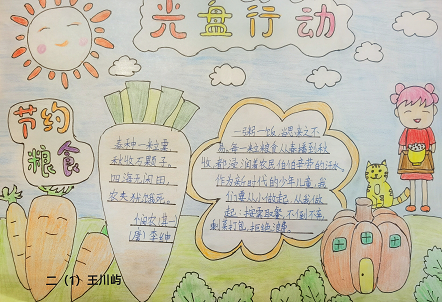 光盘行动
节约
粮食
春种一粒粟,
秋收万颗子。
四海无闲田,
农夫犹饿死。
悯农(其一)
(唐)李绅
一粥一饭,当思来之不
易。每一粒粮食从春播到秋
收,都浸润着农民伯伯辛苦的汗水。
作为新时代的少年儿童,我
们要从小做起,从我做
起:按需取餐,不倒不丢,
剩菜打包,拒绝浪费。
二(1)王川屿